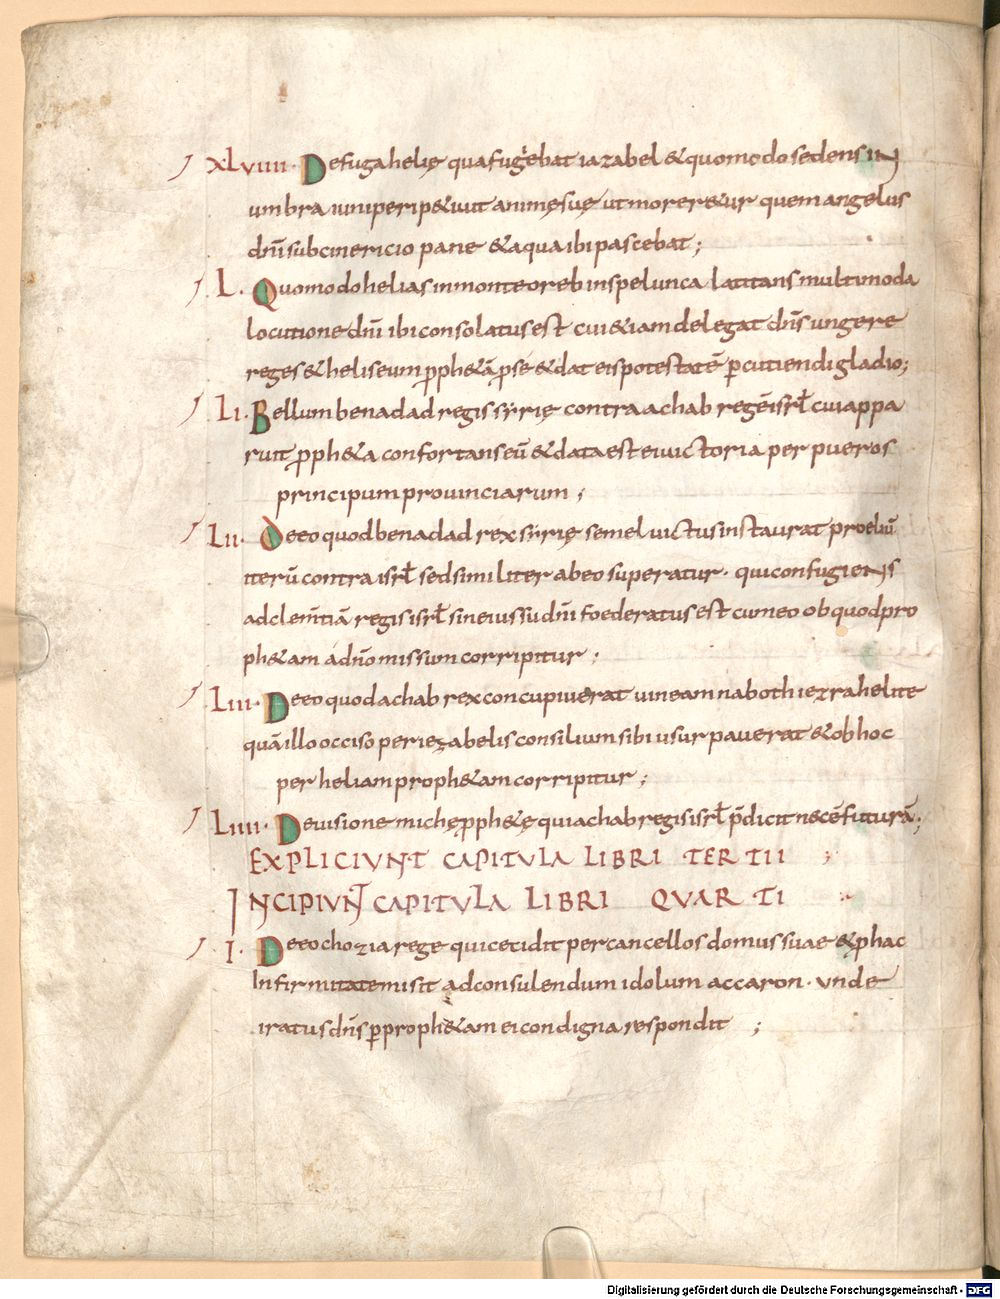 XLVIIII. De fuga helię qua fugiebat iazabel & quomodo sedens in
umbra iuniperi p&iuit animę suę ut morer&ur quem angelus
dnī subcinericio pane & aqua ibi pascebat;
L. Quomodo helias in monte oreb in spelunca latitans multimoda
locutione dnī ibi consolatus est cui &iam delegat dn̄s ungere
reges & heliseum p̱ph&ā p̱ se & dat eis potestatē p̱cutiendi gladio;
LI. Bellum benadad regis syrię contra achab regē isrł cui appa
ruit p̱ph&a confortans eū & data est ei uictoria per pueros
principum prouinciarum;
LII. De eo quod benadad rex syrię semel uictus instaurat proeliū
iterū contra isrł sed similiter ab eo superatur. qui confugiens
ad clem̄tiā regis isrł sine iussu dnī foederatus est cum eo ob quod pro
ph&am a dn̄o missum corripitur;
LIII. De eo quod achab rex concupiuerat uineam naboth iezrahelite
quā illo occiso per iezabelis consilium sibi usurpauerat & ob hoc
per heliam proph&am corripitur;
LIIII. De uisione michę p̱ph&ę qui achab regis isrł p̄dicit necē futurā;
EXPLICIUNT CAPITULA LIBRI TERTII;
INCIPIUNT CAPITULA LIBRI QUARTI
I. De eo chozia rege qui cecidit per cancellos domus suae & p̱ hac
Infirmitate misit ad consulendum idolum accaron. unde
iratus dn̄s p̱ proph&am ei condigna respondit;
Digitalisierung gefördert durch die Deutsche Forschungsgemeinschaft - DFG